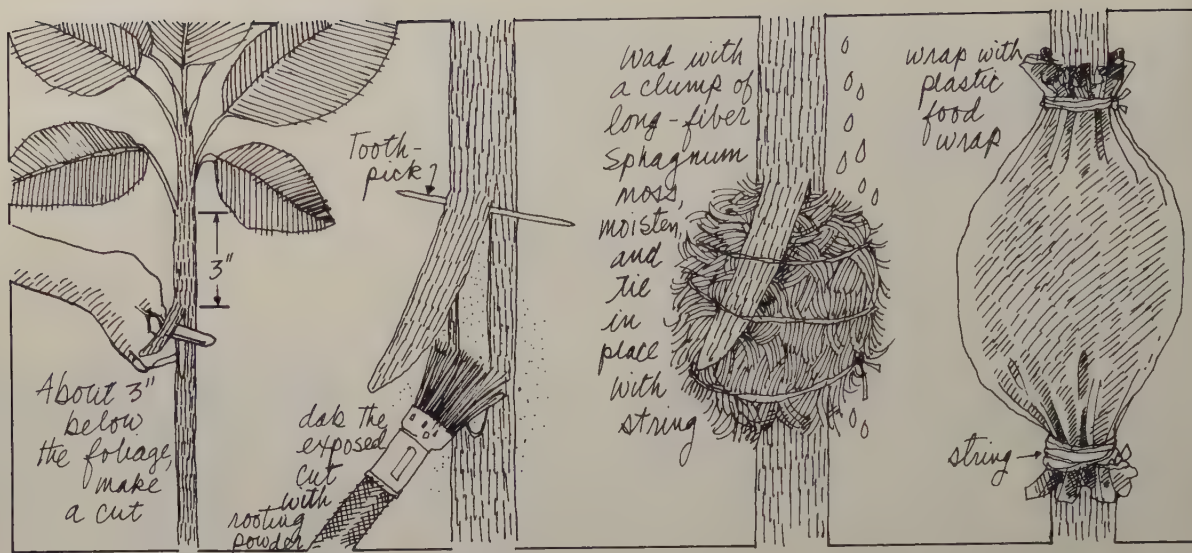 3"
About 3"
below
the foliage,
make
a cut
Tooth-
pick
dab the
exposed
cut
with
rooting
powder
Wad with
a clump of
long-fiber
Sphagnum
moss,
moisten,
and
tie
in
place
with
string
wrap with
plastic
food
wrap
string